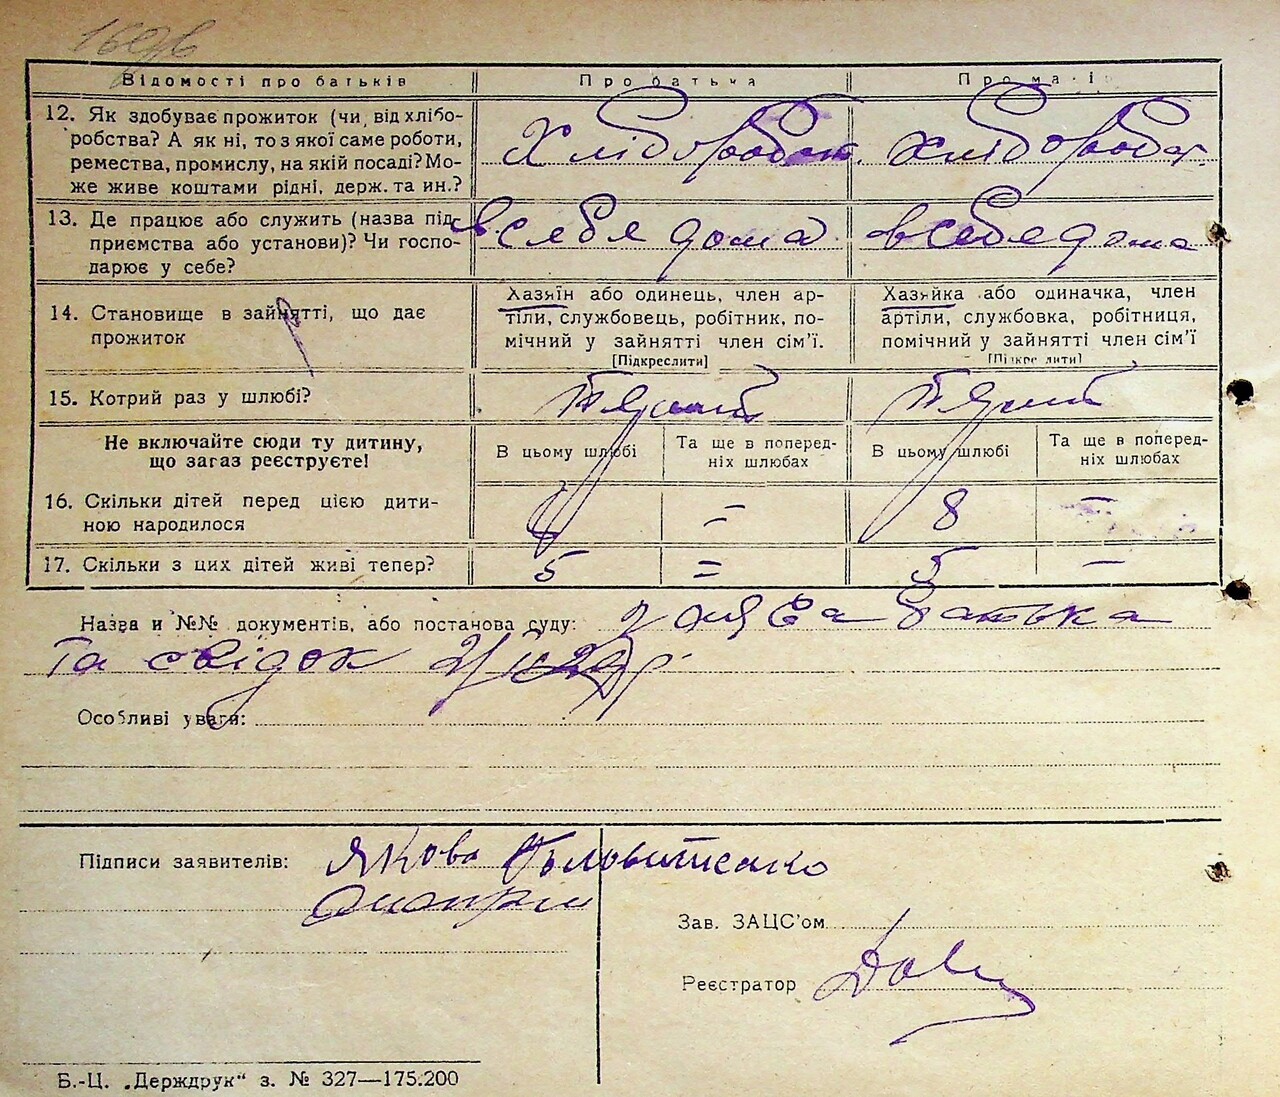 Відомості про батьків
Про батька
Про матір
12. Як здобуває прожиток (чи, від хлібо-
робства? А як ні, то з якої саме роботи,
ремества, промислу, на якій посаді? Мо-
же живе коштами рідні, держ. та ин.?
Хлібороб
хлібороб
13. Де працює або служить (назва під-
приємства або установи)? Чи госпо-
дарює у себе?
в себе дома
в себе дома
14. Становище в зайнятті, що дає
прожиток
Хазяїн або одинець, член ар-
тілі, службовець, робітник, по-
мічний у зайнятті член сім'ї.
[Підкреслити]
Хазяйка або одиначка, член
артілі, службовка, робітниця,
помічний у зайнятті член сім'ї
[Підкреслити]
15. Котрий раз у шлюбі?
Не включайте сюди ту дитину,
що загаз реєструєте!
В цьому шлюбі
Та ще в поперед-
ніх шлюбах
В цьому шлюбі
Та ще в поперед-
ніх шлюбах
16. Скільки дітей перед цією дити-
ною народилося
= 8 =
17. Скільки з цих дітей живі тепер?
5 = 5 =
Назва и №№ документів, або постанова суду: батька
та свідок
Особливі уваги:
Підписи заявителів: Якова
Зав. ЗАЦС'ом
Реєстратор
Б.-Ц. „Держдрук“ з. № 327—175.200